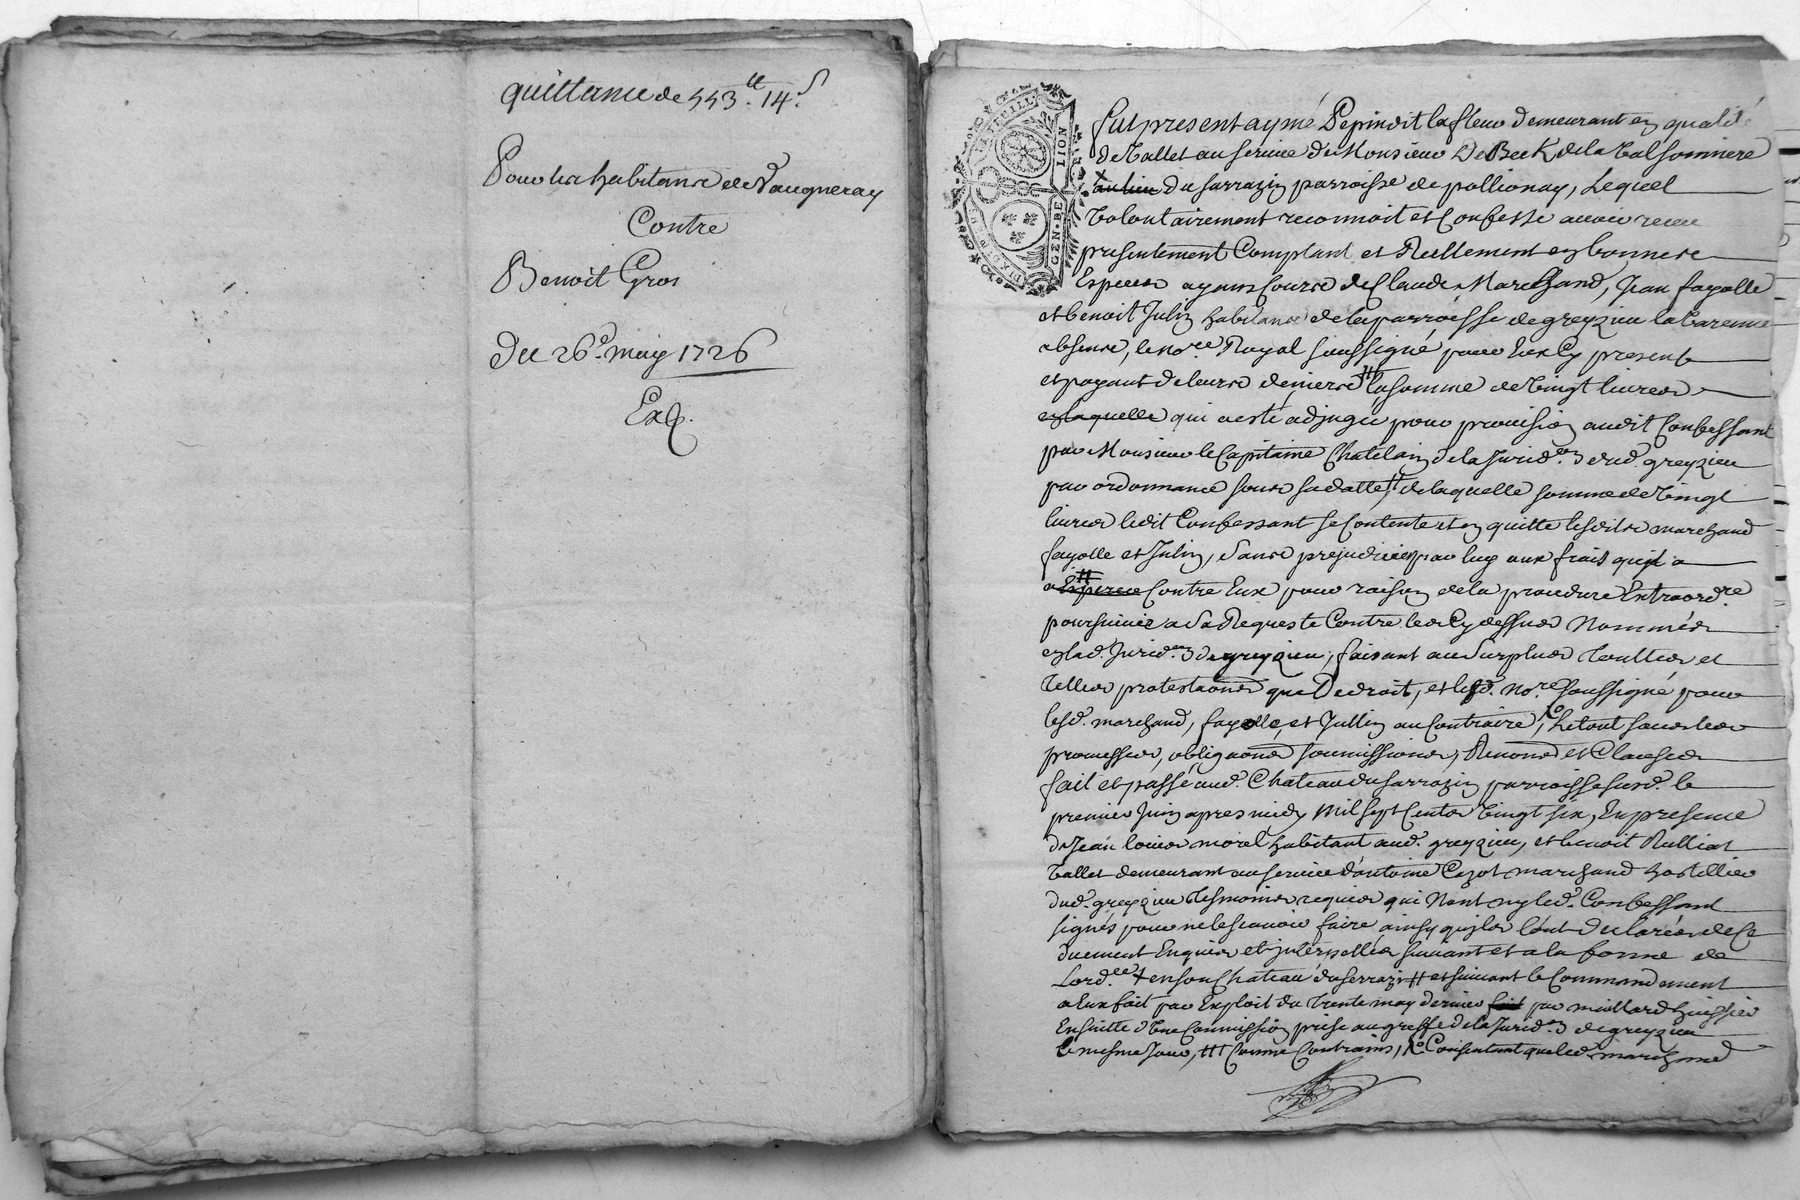 quittance de 553.tt 14.s
Pour les habitans de Vaugneray
Contre
Benoit Gros
Du 26.e may 1726
Exp.
GEN·DE LION
fut present aymé Pepin dit lafleur demeurant en qualité
de Vallet au service de Monsieur De Beck de la Valsonniere
au lieu du sarrazin parroisse de pollionay, Lequel
Volontairement reconnoit et Confesse avoir receu
presentement Comptant et Réellement en bonnes
Especes ayans Cours de Claude Marchand, Jean fayolle
et benoit Julin habitans de la parroisse de greyzieu la Varenne
absens, le no.re Royal soussigné pour Eux Cy present
et payant de leurs deniers # la somme de Vingt livres
en laquelle qui a esté adjugée pour provision audit Confessant
par Monsieur le Capitaine Chatelain de la Jurid.on dud. greyzieu
par ordonnance sous sa datte, # de laquelle somme de Vingt
livres ledit Confessant se Contente et en quitte lesdits marchand
fayolle et Julin, sans prejudicier par luy aux frais qu'il a
# Contre Eux pour raison de la procedure Extraord.re
poursuivie a Sa Requeste Contre les Cy dessus Nommés
en lad. Jurid.on de greyzieu, faisant au Surplus touttes et
telles protestaons que De droit, et led. no.re soussigné pour
lesd. marchand, fayolle, et Jullin au Contraire, Le tout sous les
promesses, obligaons soumissions, Renons et Clauses
fait et passé aud. Chateau du sarrazin parroisse susd. le
premier Juin apres midy Mil sept Cents Vingt six, En presence
de Jean louis morel habitant aud. greyzieu, et benoit Rulliat
Vallet demeurant au service d'antoine Cazot marchand hostellier
dud. greyzieu tesmoins requis qui N'ont ny led. Confessant
signés pour ne le scavoir faire ainsy qu'ils l'ont declarés de Ce
duement Enquis et interpellés suivant et a la forme de
Lord.ce + en son Chateau du sarrazin # et suivant le Commandement
a Eux fait par Exploit du trente may dernier fait par miollard huissier
Ensuitte d'Une Commission prise au greffe de la Jurid.on de greyzieu
le mesme Jour, ### Comme Contrains, Consentant que led. marchand